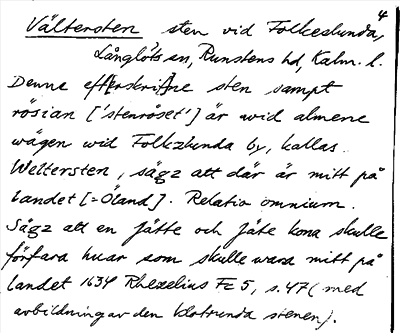 4
Vältersten sten vid Folkeslunda,
Långlöts sn, Runstens hd, Kalm. l.
Denne efterskrifne sten sampt
rösian ['stenröset'] är wid almene
wägen wid Folkzlunda by, kallas
Weltersten, sägz att där är mitt på
landet [= Öland]. Relatio omnium.
Sägz att en Jätte och Jäte kona skulle
förfara huar som skulle wara mitt på
landet 1634 Rhezelius Fc 5, s. 47 (med
avbildning av den klotrunda stenen).